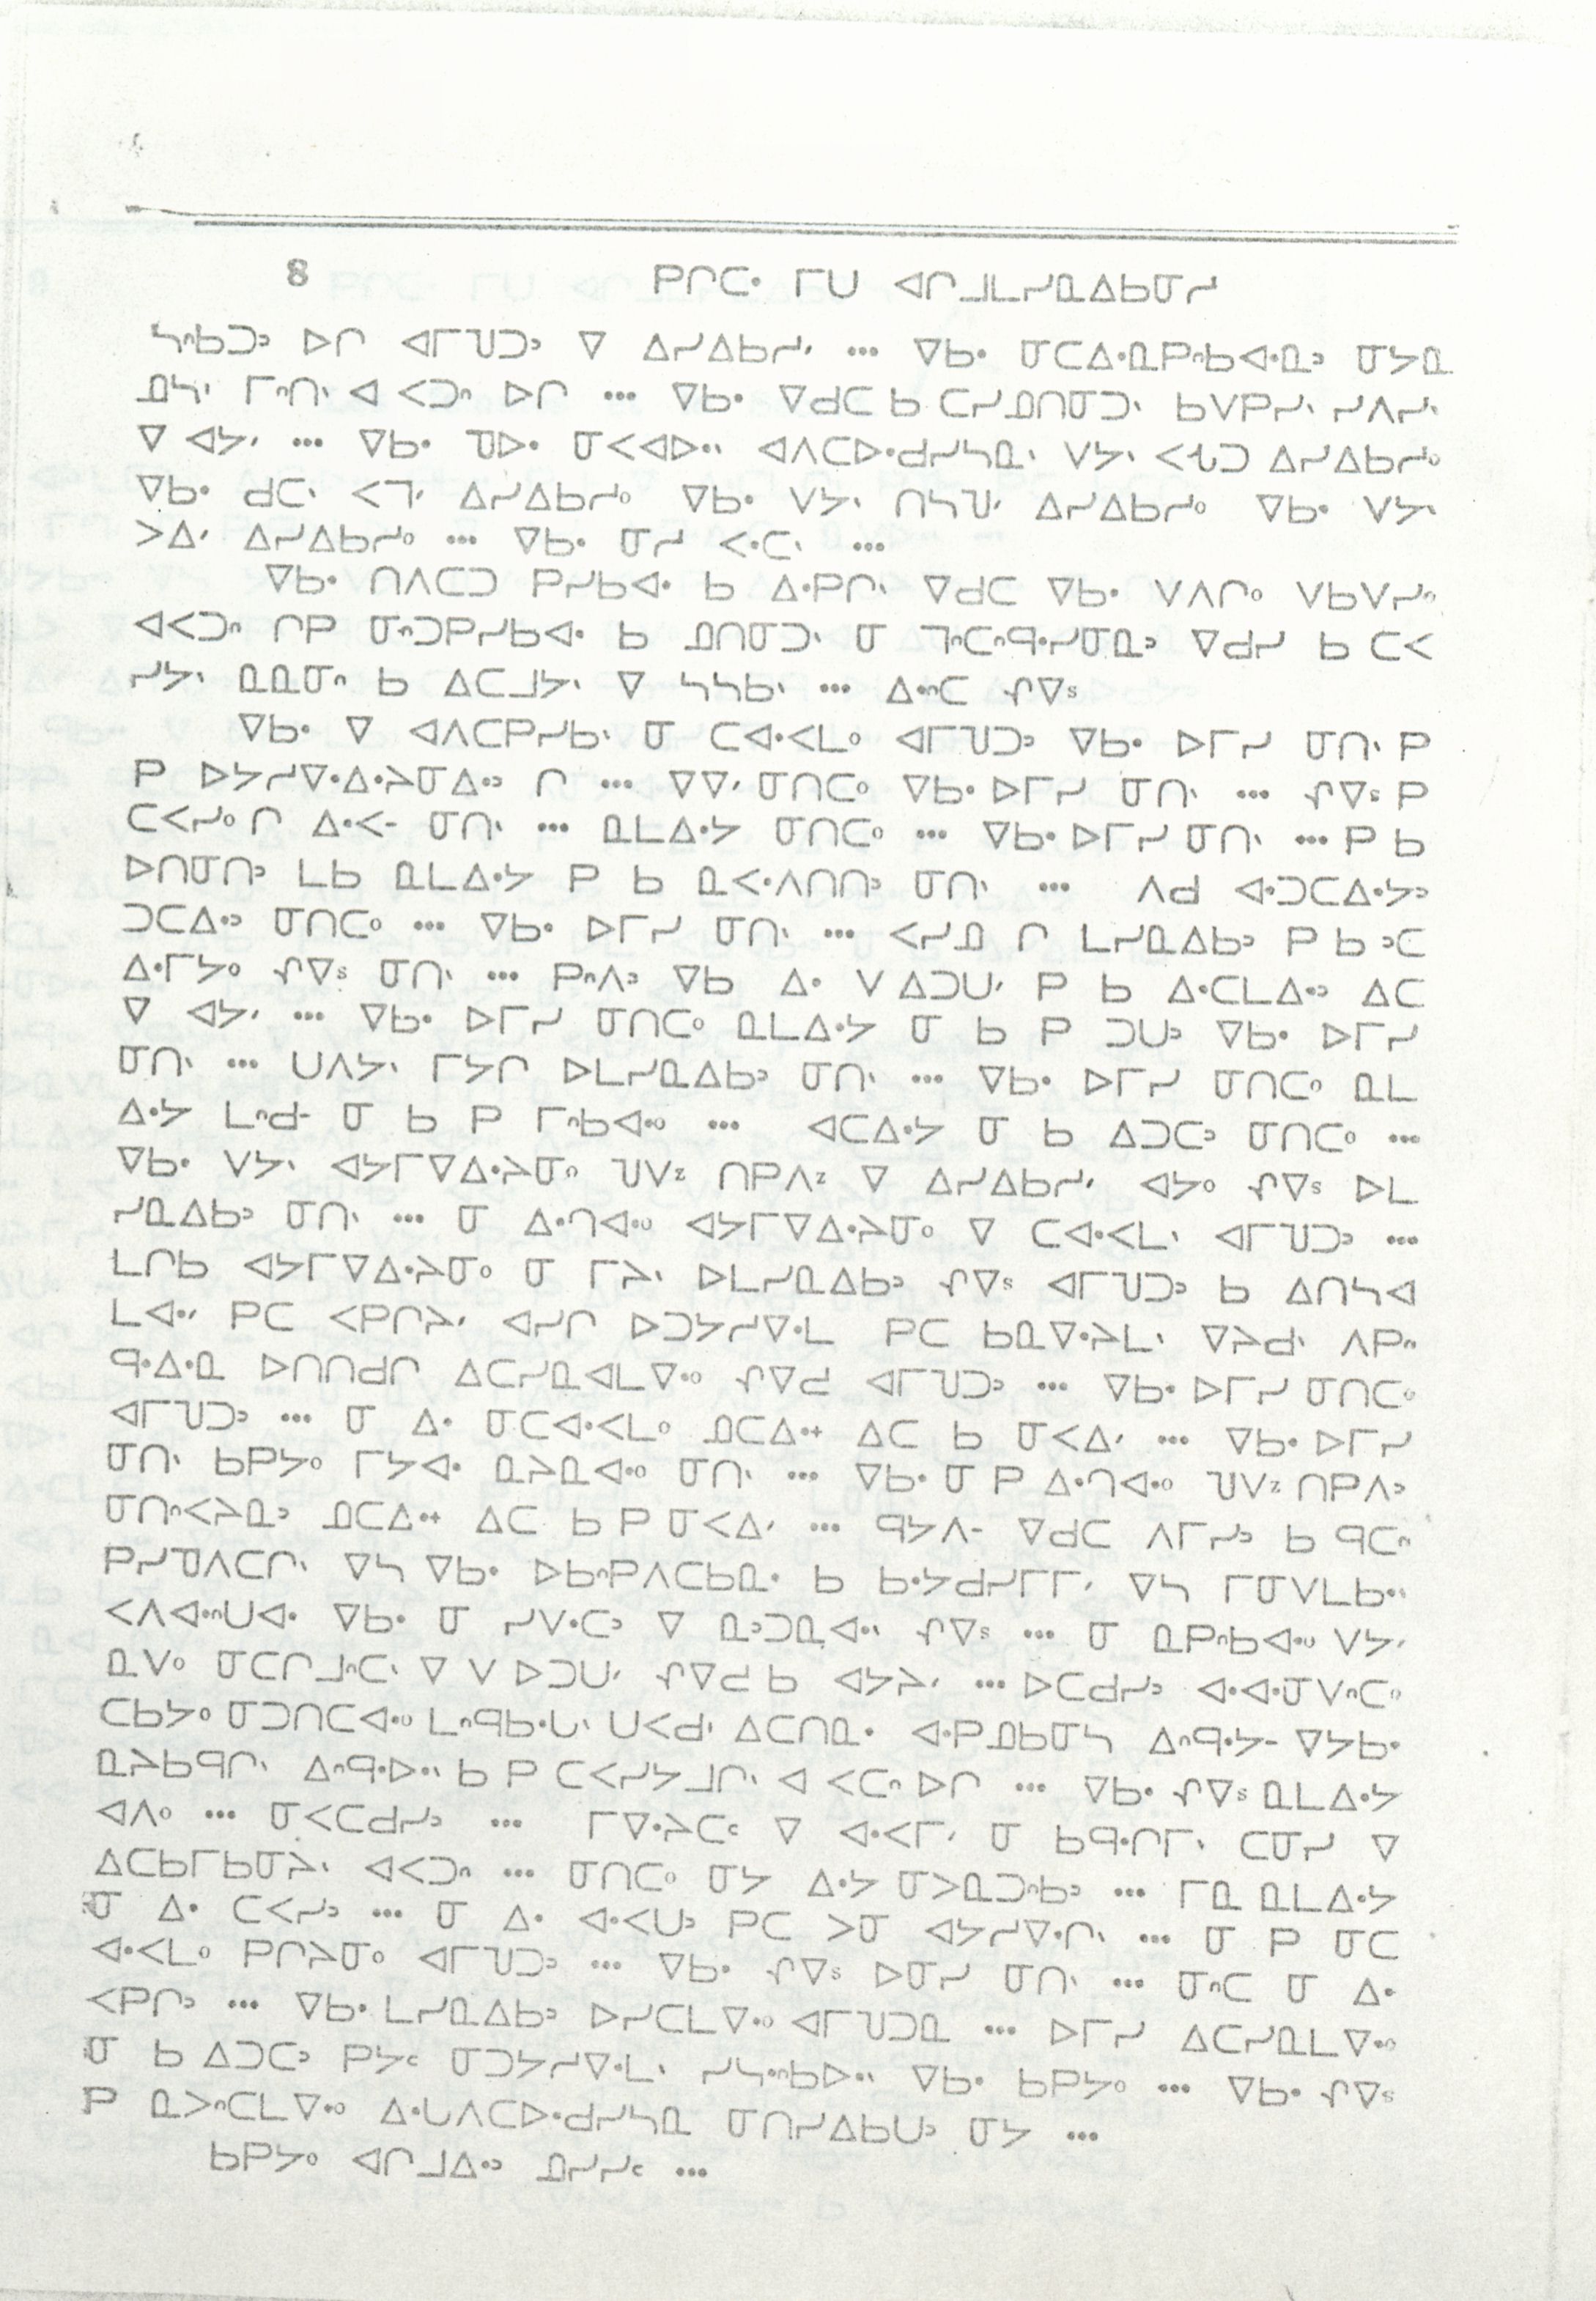 8 ᑭᒋᑕᐧ ᒥᑌ ᐊᒋᒧᒪᓯᓇᐃᑲᓂᓯ
ᔕᐣᑲᑐᐣ ᐅᒋ ᐊᒥᖑᑐᐣ ᐁ ᐃᓯᐃᑲᓱᐟ ... ᐁᑲᐧ ᓂᑕᐃᐧᓇᑭᐢᑲᐊᐧᓇᐣ ᓂᔭᓇ
ᓄᓴᐠ ᒥᐢᑎᐠ ᐊ ᐸᑐᐢ ᐅᒋ ... ᐁᑲᐧ ᐁᑯᑕ ᑲ ᑕᓯᓄᑎᓂᑐᐠ ᑲᐯᑭᓱᐠ ᓯᐱᓱᐠ
ᐁ ᐊᔭᐟ ... ᐁᑲᐧ ᓀᐅᐧ ᓂᐸᐊᐅᐧᐠ ᐊᐱᑕᐅᐧᑯᓯᓴᓇᐠ ᐯᔭᐠ ᐸᖠᑐ ᐃᓯᐃᑲᓱᐤ
ᐁᑲᐧ ᑯᑕᐠ ᐸᒣᐟ ᐃᓯᐃᑲᓱᐤ ᐁᑲᐧ ᐯᔭᐠ ᑎᓴᖑᐟ ᐃᓯᐃᑲᓱᐤ ᐁᑲᐧ ᐯᔭᐠ
ᐳᐃᐟ ᐃᓯᐃᑲᓱᐤ ... ᐁᑲᐧ ᓂᓱ ᐸᐧᑕᐠ ...
ᐁᑲᐧ ᑎᐱᑕᑐ ᑭᓯᑲᐊᐧ ᑲ ᐃᐧᑭᒋᐠ ᐁᑯᑕ ᐁᑲᐧ ᐯᐱᒋᐤ ᐯᑲᐯᓯᐢ
ᐊᐸᑐᐢ ᒋᑭ ᓂᐢᑐᑭᓯᑲᐊᐧ ᑲ ᓄᑎᓂᑐᐠ ᓂ ᒣᐢᑕᐢᑫᐧᓯᓂᓇᐣ ᐁᑯᓯ ᑲ ᑕᐸ
ᓯᔭᐠ ᓇᓇᓂᐢ ᑲ ᐃᑕᒧᔭᐠ ᐁ ᓴᓴᑲᐠ ... ᐃᐧᐢᑕ ᖏᐁᔆ
ᐁᑲᐧ ᐁ ᐊᐱᑕᑭᓯᑲᐠ ᓂ ᑕᐊᐧᐸᒪᐤ ᐊᒥᖑᑐᐣ ᐁᑲᐧ ᐅᒥᓯ ᓂᑎᐠ ᑭ
ᑭ ᐅᔭᓯᐁᐧᐃᐧᔨᓂᐃᐧᐣ ᒋ ... ᐁᐁᐟ ᓂᑎᑕᐤ ᐁᑲᐧ ᐅᒥᓯ ᓂᑎᐠ ... ᖏᐁᔆ ᑭ
ᑕᐸᓯᐤ ᒋ ᐃᐧᐸᐨ ᓂᑎᐠ ... ᓇᒪᐃᐧᔭ ᓂᑎᑕᐤ ... ᐁᑲᐧ ᐅᒥᓯ ᓂᑎᐠ ... ᑭ ᑲ
ᐅᑎᓂᑎᐣ ᒪᑲ ᓇᒪᐃᐧᔭ ᑭ ᑲ ᓇᐸᐧᐱᑎᑎᐣ ᓂᑎᐠ ... ᐱᑯ ᐊᐧᑐᑕᐃᐧᔭᐣ
ᑐᑕᐃᐧᐣ ᓂᑎᑕᐤ ... ᐁᑲᐧ ᐅᒥᓯ ᓂᑎᐠ ... ᐸᓯᓄ ᒋ ᒪᓯᓇᐃᑲᐣ ᑭ ᑲ ᐣᑕ
ᐃᐧᒥᔭᐤ ᖏᐁᔆ ᓂᑎᐠ ... ᑭᐢᐱᐣ ᐁᑲ ᐃᐧ ᐯ ᐃᑐᑌᐟ ᑭ ᑲ ᐃᐧᑕᒪᐃᐧᐣ ᐃᑕ
ᐁ ᐊᔭᐟ ... ᐁᑲᐧ ᐅᒥᓯ ᓂᑎᑕᐤ ᓇᒪᐃᐧᔭ ᓂ ᑲ ᑭ ᑐᑌᐣ ᐁᑲᐧ ᐅᒥᓯ
ᓂᑎᐠ ... ᑌᐱᔭᐠ ᒥᔭᒋ ᐅᒪᓯᓇᐃᑲᐣ ᓂᑎᐠ ... ᐁᑲᐧ ᐅᒥᓯ ᓂᑎᑕᐤ ᓇᒪ
ᐃᐧᔭ ᒪᐢᑯᐨ ᓂ ᑲ ᑭ ᒥᐢᑲᐊᐧᐤ ... ᐊᑕᐃᐧᔭ ᓂ ᑲ ᐃᑐᑕᐣ ᓂᑎᑕᐤ ...
ᐁᑲᐧ ᐯᔭᐠ ᐊᔭᒥᐁᐃᐧᔨᓂᐤ ᖑᐯᙆ ᑎᑭᐱᙆ ᐁ ᐃᓯᐃᑲᓱᐟ ᐊᔭᐤ ᖏᐁᔆ ᐅᒪ
ᓯᓇᐃᑲᐣ ᓂᑎᐠ ... ᓂ ᐃᐧᒉᐊᐧᐤ ᐊᔭᒥᐁᐃᐧᔨᓂᐤ ᐁ ᑕᐊᐧᐸᒪᐠ ᐊᒥᖑᑐᐣ ...
ᒪᒋᑲ ᐊᔭᒥᐁᐃᐧᔨᓂᐤ ᓂ ᒥᔨᐠ ᐅᒪᓯᓇᐃᑲᐣ ᖏᐁᔆ ᐊᒥᖑᑐᐣ ᑲ ᐃᑎᓴᐊ
ᒪᐊᐧᐟ ᑭᑕ ᐸᑭᒋᔨᐟ ᐊᓯᒋ ᐅᑐᔭᓯᐁᐧᒪ ᑭᑕ ᑲᓇᐁᐧᔨᒪᐠ ᐁᔨᑯᐠ ᐱᑭᐢ
ᑫᐧᐃᐧᓇ ᐅᑎᑎᑯᒋ ᐃᑕᓯᓇᐊᒪᐁᐧᐤ ᖏᐁᓱ ᐊᒥᖑᑐᐣ ... ᐁᑲᐧ ᐅᒥᓯ ᓂᑎᑕᐤ
ᐊᒥᖑᑐᐣ ... ᓂ ᐃᐧ ᓂᑕᐊᐧᐸᒪᐤ ᓄᑕᐃᐧᕀ ᐃᑕ ᑲ ᓂᐸᐃᐟ ... ᐁᑲᐧ ᐅᒥᓯ
ᓂᑎᐠ ᑲᑭᔭᐤ ᒥᔭᐊᐧ ᓇᔨᓇᐊᐧᐤ ᓂᑎᐠ ... ᐁᑲᐧ ᓂ ᑭ ᐃᐧᒉᐊᐧᐤ ᖑᐯᙆ ᑎᑭᐱᐣ
ᓂᑎᐢᐸᔨᓇᐣ ᓄᑕᐃᐧᕀ ᐃᑕ ᑲ ᑭ ᓂᐸᐃᐟ ... ᑫᔭᐱᐨ ᐁᑯᑕ ᐱᒥᓯᐣ ᑲ ᑫᑕᐢ
ᑭᓯᑯᐱᑕᒋᐠ ᐁᓴ ᐁᑲᐧ ᐅᑲᐢᑭᐱᑕᑲᓇᐧ ᑲ ᑲᐧᔭᑯᓯᒥᒥᐟ ᐁᓴ ᒥᓂᐯᒪᑲᐧᐠ
ᐸᐱᐊᐧᐢᑌᐊᐧ ᐁᑲᐧ ᓂ ᓯᐯᐧᑕᐣ ᐁ ᓇᐣᑐᓇᐊᐧᐠ ᖏᐁᔆ ... ᓂ ᓇᑭᐢᑲᐊᐧᐤ ᐯᔭᐟ
ᓇᐯᐤ ᓂᑕᒋᒧᐢᑕᐠ ᐁ ᐯ ᐅᑐᑌᐟ ᖏᐁᓱ ᑲ ᐊᔭᔨᐟ ... ᐅᑕᑯᓯᐣ ᐊᐧᐊᐧᓂᐯᐢᑕᐤ
ᑕᑲᔭᐤ ᓂᑐᑎᑕᐊᐧᐤ ᒪᐢᑫᑲᐧᐨᐠ ᑌᐸᑯᐠ ᐃᑕᑎᓇᐧ ᐊᐧᑭᓄᑲᓂᓴ ᐃᐢᑫᐧᔭᐨ ᐁᔭᑲᐧ
ᓇᔨᑲᑫᒋᐠ ᐃᐢᑫᐧᐅᐧᐠ ᑲ ᑭ ᑕᐸᓯᔭᒧᒋᐠ ᐊ ᐸᑕᐢ ᐅᒋ ... ᐁᑲᐧ ᖏᐁᔆ ᓇᒪᐃᐧᔭ
ᐊᐱᐤ ... ᓂᐸᑕᑯᓯᐣ ... ᒥᐁᐧᔨᑕᑦ ᐁ ᐊᐧᐸᒥᐟ ᓂ ᑲᑫᐧᒋᒥᐠ ᑕᓂᓯ ᐁ
ᐃᑕᑲᒥᑲᓂᔨᐠ ᐊᐸᑐᐢ ... ᓂᑎᑕᐤ ᓂᔭ ᐃᐧᔭ ᓂᐳᓇᑐᐢᑲᐣ ... ᒥᓇ ᓇᒪᐃᐧᔭ
ᓂ ᐃᐧ ᑕᐸᓯᐣ ... ᓂ ᐃᐧ ᐊᐧᐸᑌᐣ ᑭᑕ ᐳᓂ ᐊᔭᓯᐁᐧᒋᐠ ... ᓂ ᑭ ᓂᑕ
ᐊᐧᐸᒪᐤ ᑭᒋᔨᓂᐤ ᐊᒥᖑᑐᐣ ... ᐁᑲᐧ ᖏᐁᔆ ᐅᓂᓯ ᓂᑎᐠ ... ᓂᐢᑕ ᓂ ᐃᐧ
ᐸᑭᒋᐣ ... ᐁᑲᐧ ᒪᓯᓇᐃᑲᐣ ᐅᓯᑕᒪᐁᐧᐤ ᐊᒥᖑᑐᓇ ... ᐅᒥᓯ ᐃᑕᓯᓇᒪᐁᐧᐤ
ᓂ ᑲ ᐃᑐᑕᐣ ᑭᔭᑦ ᓂᑐᔭᓯᐁᐧᒪᐠ ᓯᓴᐧᐢᑲᐅᐧᐠ ᐁᑲᐧ ᑲᑭᔭᐤ ... ᐁᑲᐧ ᖏᐁᔆ
ᑭ ᓇᐳᐢᑕᒪᐁᐧᐤ ᐃᐧᑌᐱᑕᐅᐧᑯᓯᓴᓇ ᓂᑎᓯᐃᑲᑌᐣ ᓂᔭ ...
ᑲᑭᔭᐤ ᐊᒋᒧᐃᐧᐣ ᓄᓯᓯᑦ ...